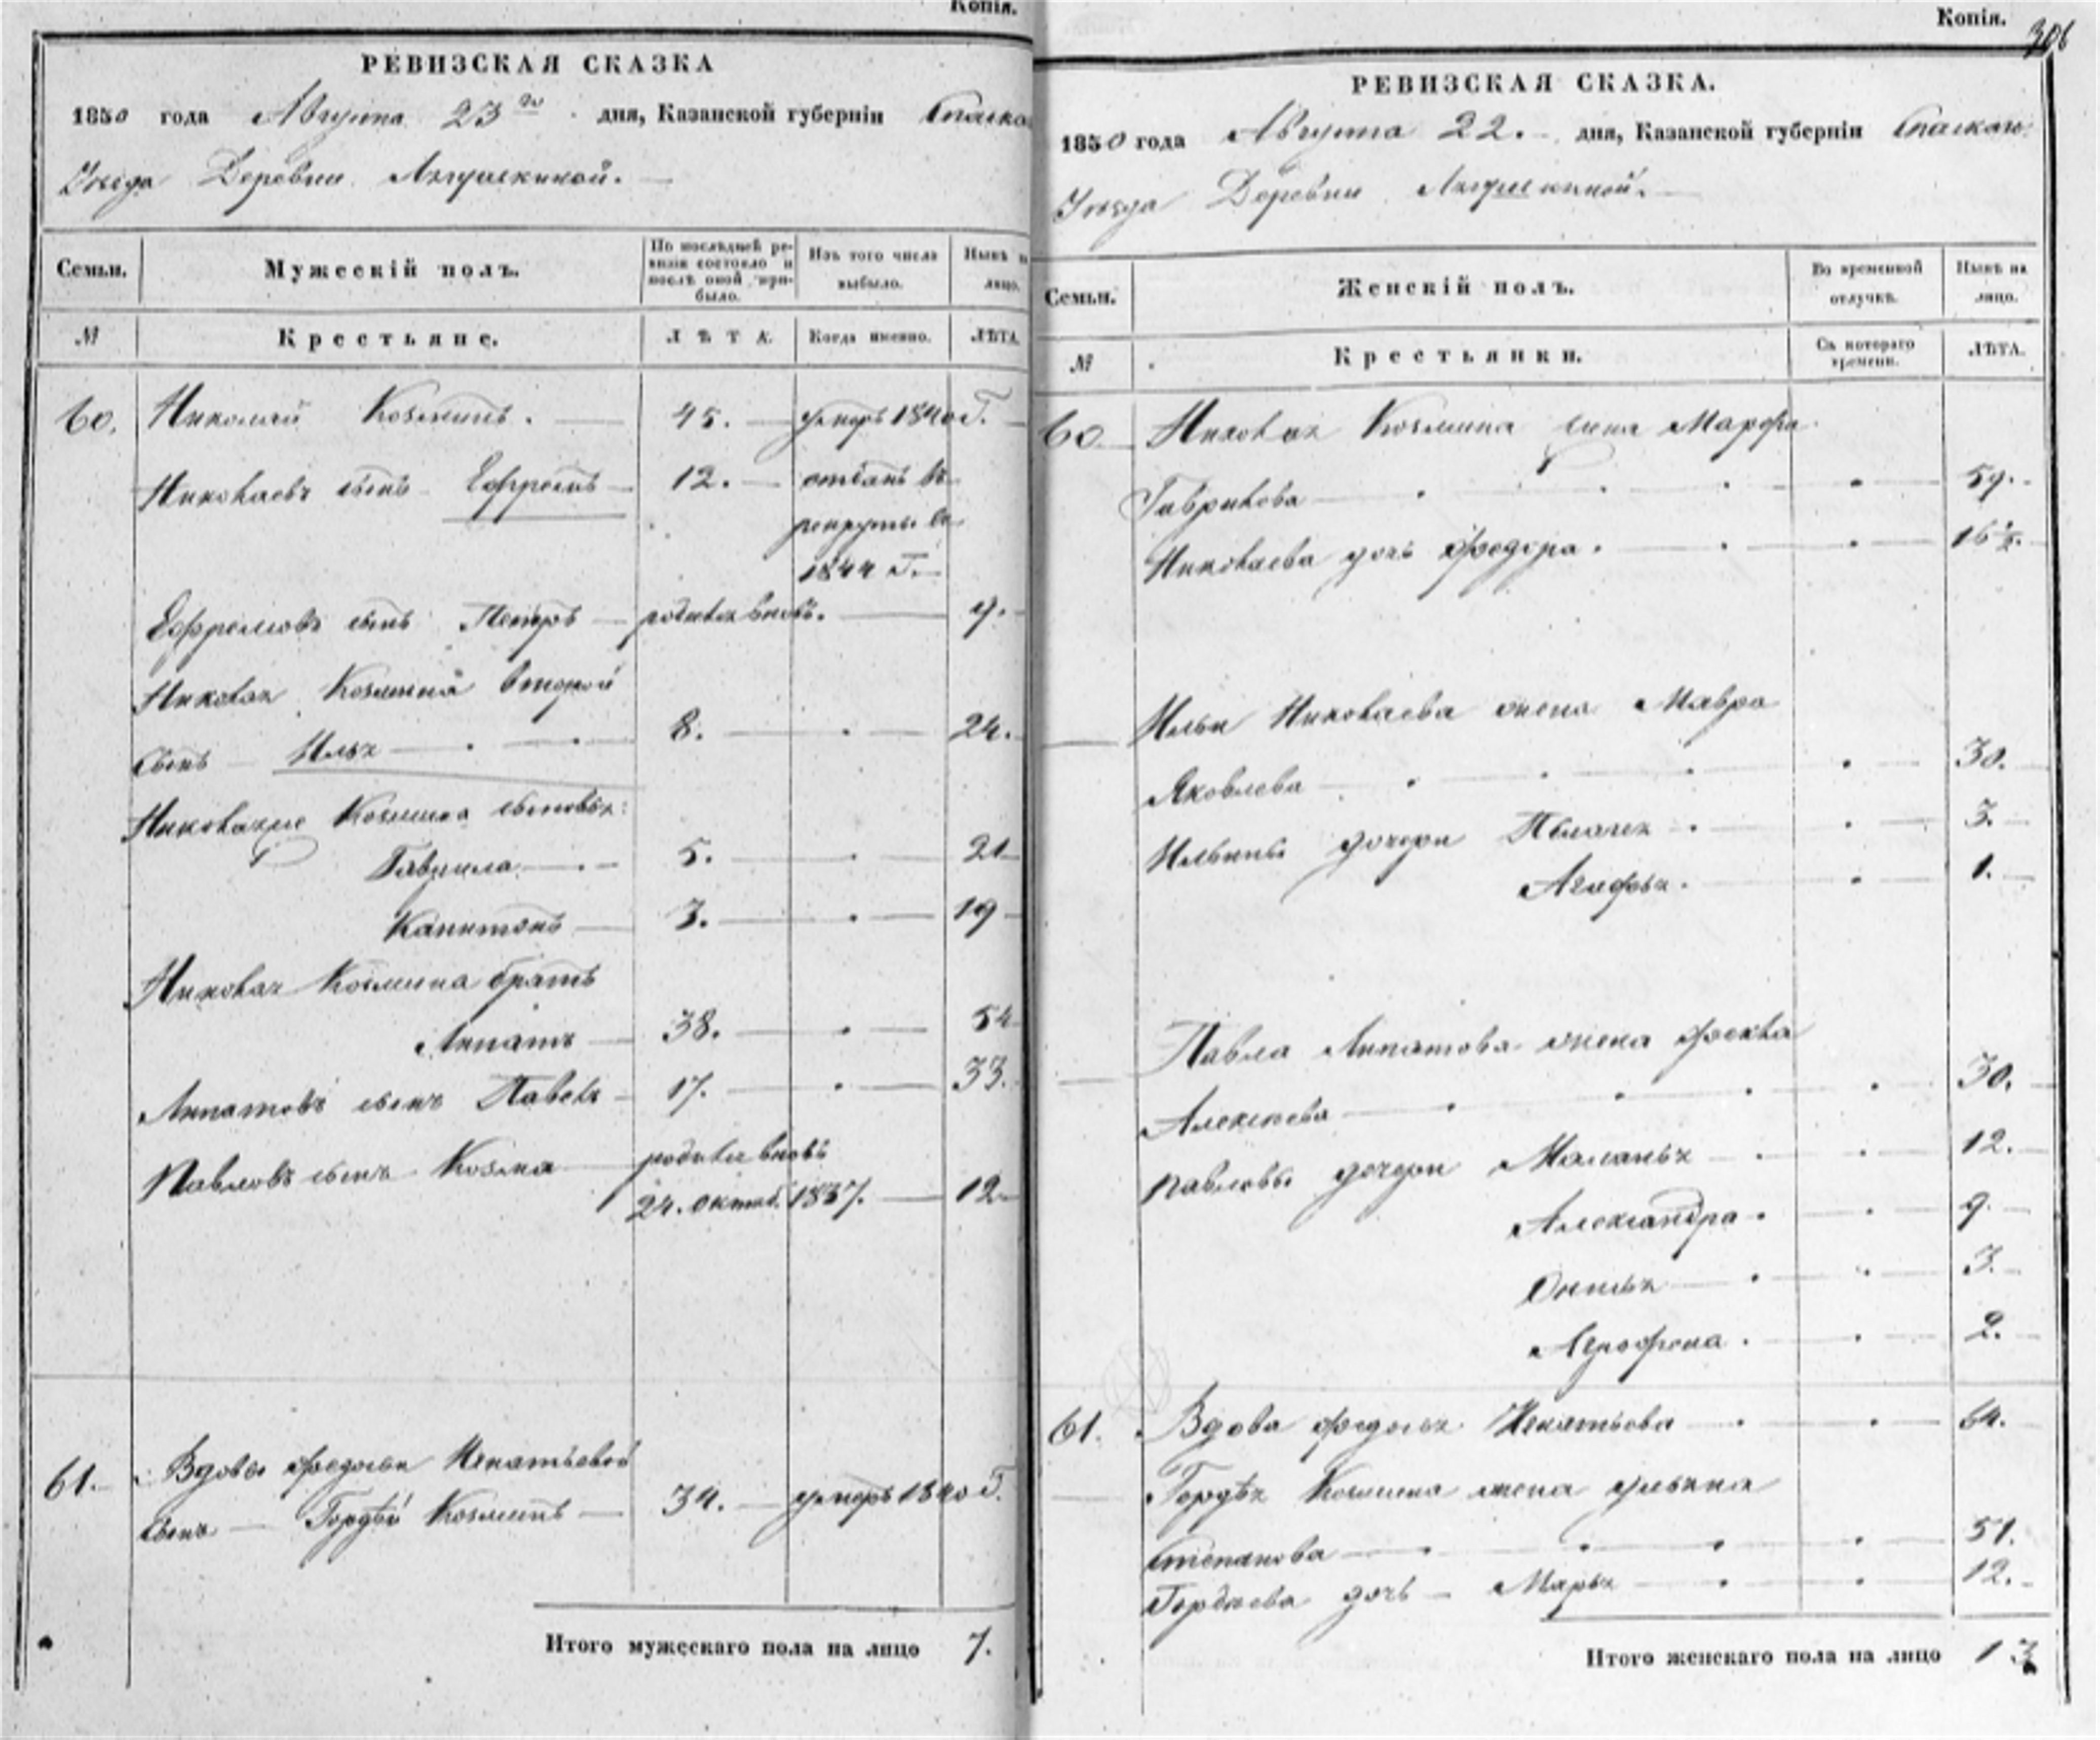 Копія.
РЕВИЗСКАЯ СКАЗКА
1850 года Августа 23го дня, Казанской губерніи Спаско
Уѣзда Деревни
Семьи.
Мужескій полъ.
По послѣдней ревизіи состояло и послѣ оной прибыло.
Изъ того числа выбыло.
Нынѣ на лицо.
№
Крестьяне.
ЛѢТА.
Когда именно.
ЛѢТА.
60. Николай Козминъ. 45. умеръ 1840 Г.
Николаевъ сынъ Ефремъ 12. отданъ въ
рекруты въ
1844 Г.
Ефремовъ сынъ Петръ родился вновь. 9.
Николая Козмина второй
сынъ Илья 8. 24.
Николаже Козмина сыновья:
Гаврила 5. 21
Капитонъ 3. 19
Николая Козмина братъ
Липатъ 38. 54
Липатовъ сынъ Павелъ 17. 33.
Павловъ сынъ Козма родился вновь
24. октяб. 1837. 12.
61. Вдовы Федосьи Игнатьевой
сынъ Гордѣй Козминъ 34. умеръ 1840 Г.
Итого мужескаго пола на лицо 7.
Копія.
306
РЕВИЗСКАЯ СКАЗКА.
1850 года Августа 22. дня, Казанской губерніи Спаскаго
Уѣзда Деревни
Семьи.
Женскій полъ.
Во временной отлучкѣ.
Нынѣ на лицо.
№
Крестьянки.
Съ котораго времени.
ЛѢТА.
60 Николая Козмина жена Марфа
Гаврилова 59.
Николаева дочь Федора. 16 ½.
Ильи Николаева жена Мавра
Яковлева 30.
Ильины дочери Пелагея 3.
Агафья. 1.
Павла Липатова жена Фекла
Алексеева 30.
Павловы дочери Маланья 12.
Александра. 9.
3.
Агрофена. 2.
61. Вдова Федосья Игнатьева 64.
Гордѣя Козмина жена Ульяна
Степанова 51.
Гордѣева дочь Марья 12.
Итого женскаго пола на лицо 13